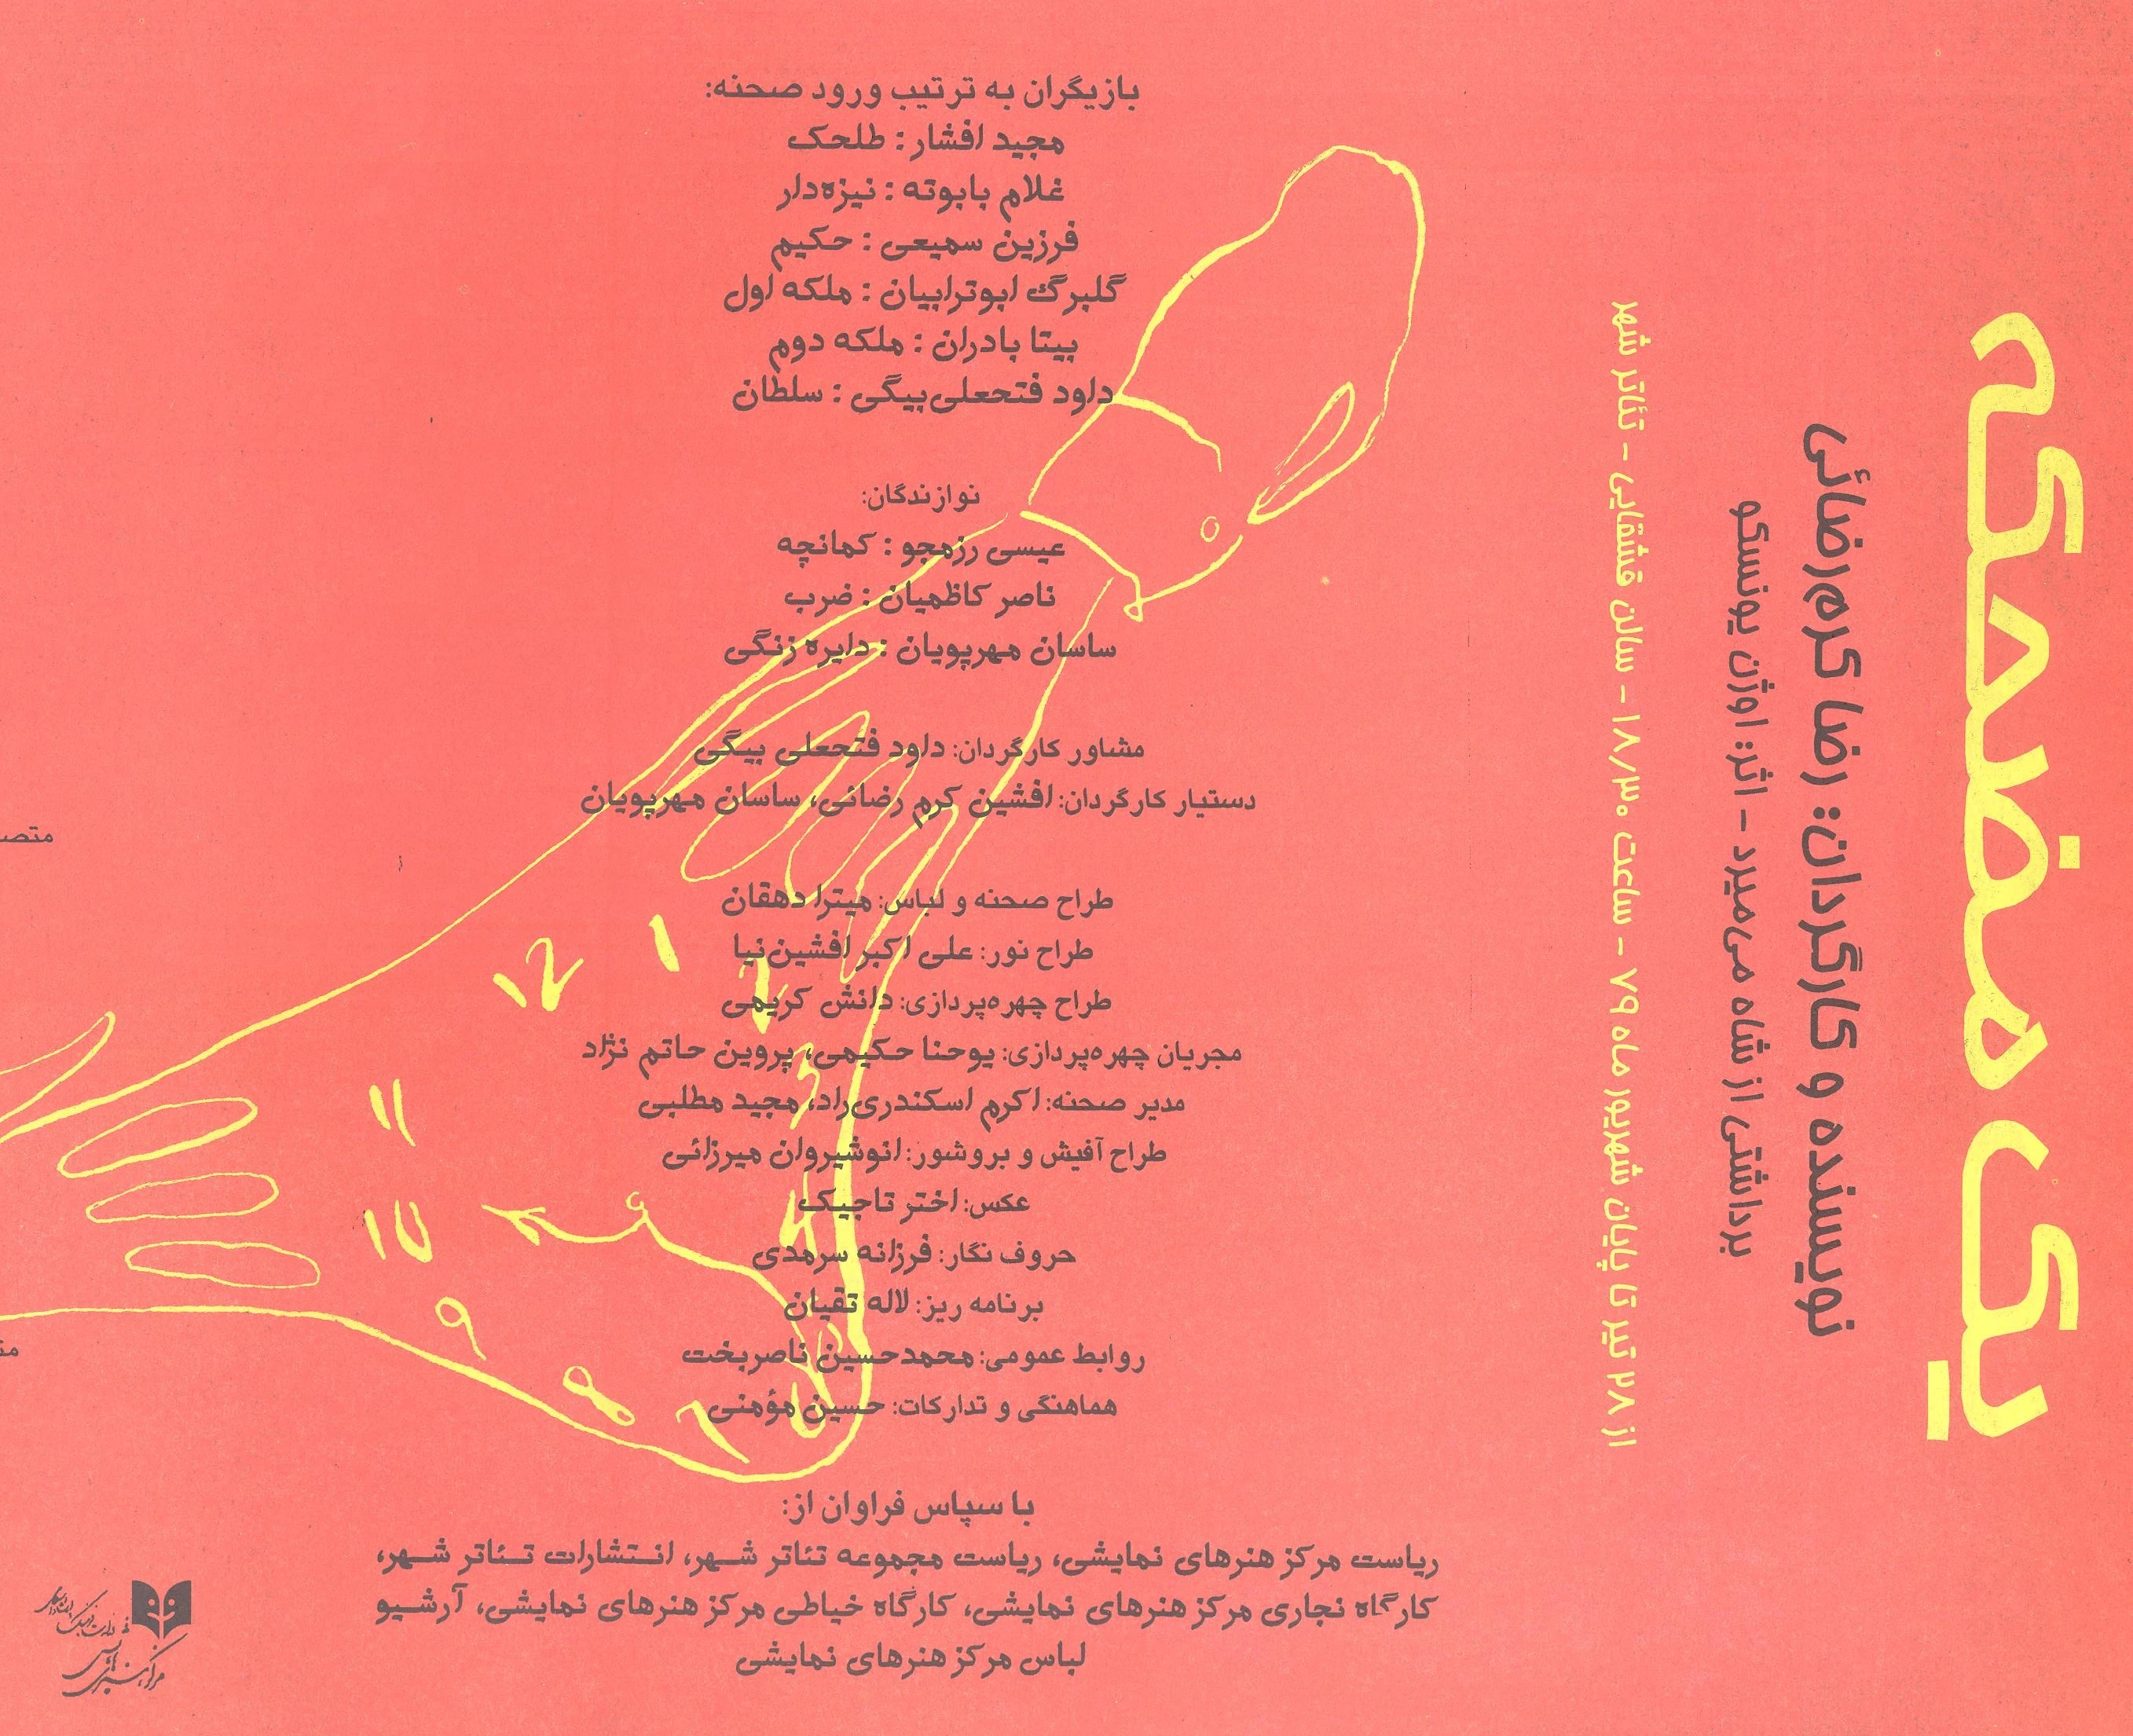 یک مضحکه
نویسنده و کارگردان: رضا کرم‌رضائی
برداشتی از شاه می‌میرد - اثر: اوژن یونسکو
از ۲۸ تیر تا پایان شهریور ماه ۷۹ - ساعت ۱۸/۳۰ - سالن قشقایی - تئاتر شهر
بازیگران به ترتیب ورود صحنه:
مجید افشار : طلحک
غلام بابوته : نیزه‌دار
فرزین سمیعی : حکیم
گلبرگ ابوترابیان : ملکه اول
بیتا بادران : ملکه دوم
داود فتحعلی‌بیگی : سلطان
نوازندگان:
عیسی رزمجو : کمانچه
ناصر کاظمیان : ضرب
ساسان مهرپویان : دایره زنگی
مشاور کارگردان: داود فتحعلی بیگی
دستیار کارگردان: افشین کرم رضائی، ساسان مهرپویان
طراح صحنه و لباس: میترا دهقان
طراح نور: علی اکبر افشین‌نیا
طراح چهره‌پردازی: دانش کریمی
مجریان چهره‌پردازی: یوحنا حکیمی، پروین حاتم نژاد
مدیر صحنه: اکرم اسکندری‌راد، مجید مطلبی
طراح آفیش و بروشور: انوشیروان میرزائی
عکس: اختر تاجیک
حروف نگار: فرزانه سرمدی
برنامه ریز: لاله تقیان
روابط عمومی: محمدحسین ناصربخت
هماهنگی و تدارکات: حسین مؤمنی
با سپاس فراوان از:
ریاست مرکز هنرهای نمایشی، ریاست مجموعه تئاتر شهر، انتشارات تئاتر شهر،
کارگاه نجاری مرکز هنرهای نمایشی، کارگاه خیاطی مرکز هنرهای نمایشی، آرشیو
لباس مرکز هنرهای نمایشی
12
1
2
11
10
9
8
7
متصد